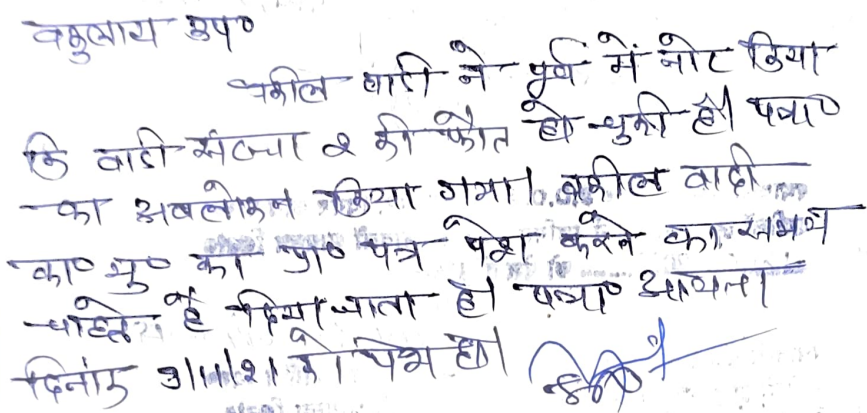 वकुलाय उप०
वकील वादी ने पूर्व में नोट किया
कि वादी संख्या २ की फौत हो चुकी है। पत्रा०
का अवलोकन किया गया। वकील वादी
का० मु० का प्रा० पत्र पेश करने का समय
चाहते हैं दिया जाता है। पत्रा० आयन्दा
दिनांक 9/11/21 को पेश हो।